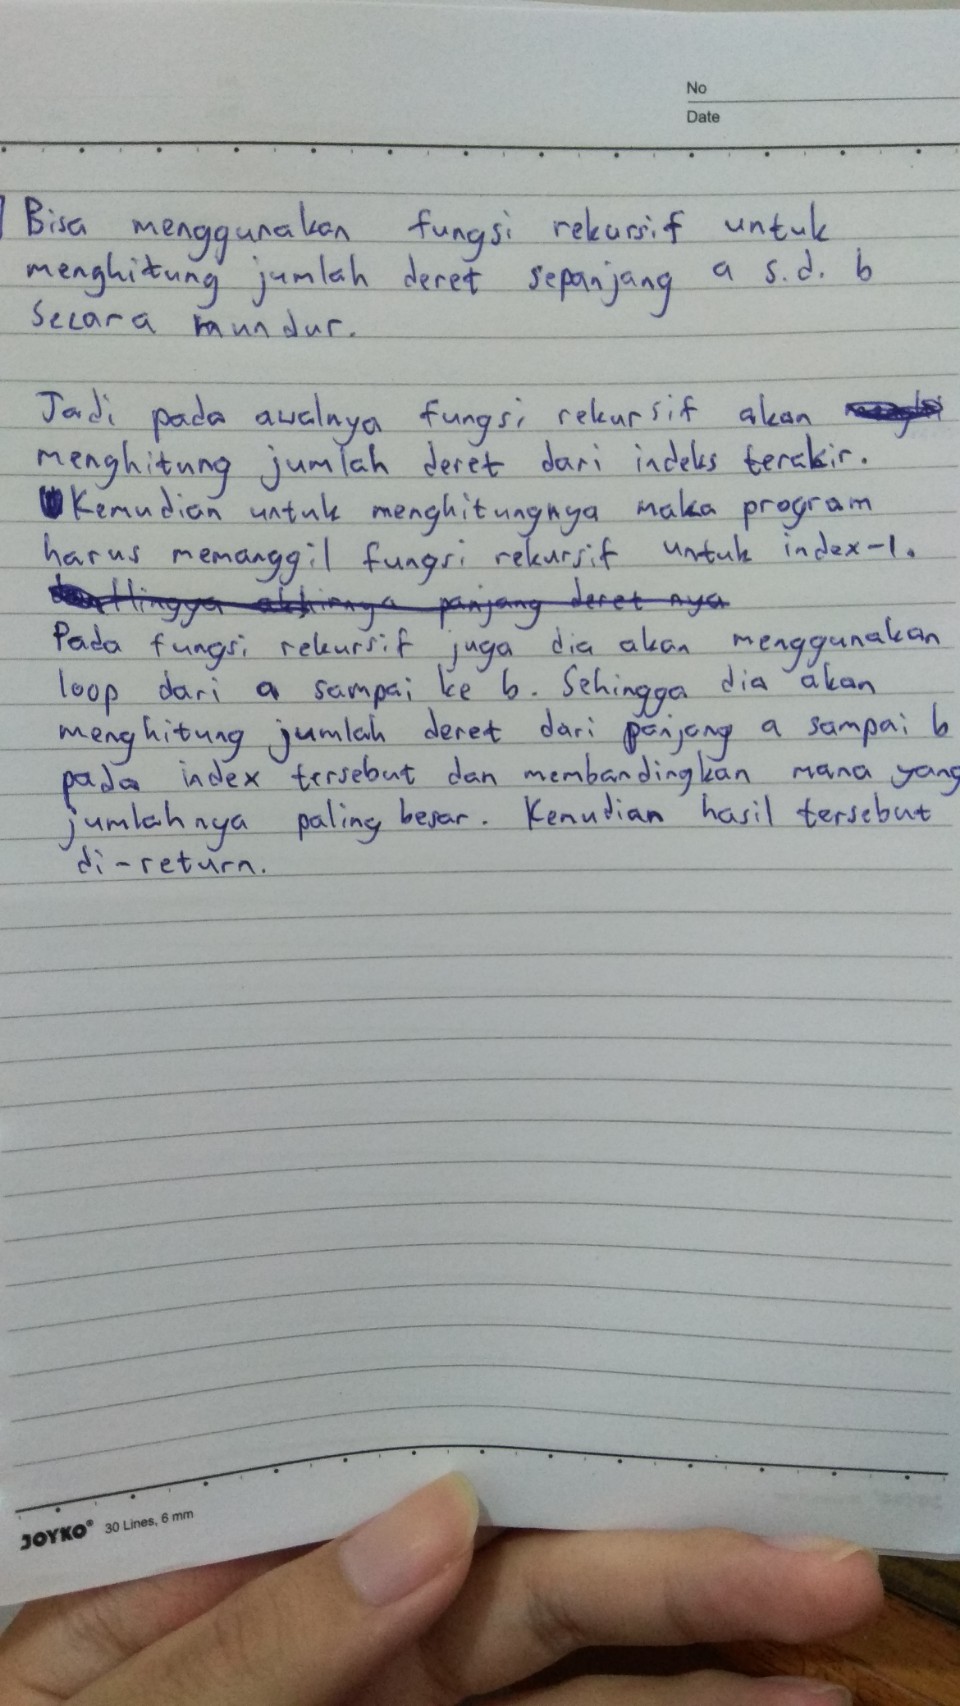 No
Date
Bisa menggunakan fungsi rekursif untuk
menghitung jumlah deret sepanjang a s.d. b
Secara mundur.
Jadi pada awalnya fungsi rekursif akan
menghitung jumlah deret dari indeks terakir.
Kemudian untuk menghitungnya maka program
harus memanggil fungsi rekursif untuk index-1.
Hingga akhirnya panjang deret nya
Pada fungsi rekursif juga dia akan menggunakan
loop dari a sampai ke b. Sehingga dia akan
menghitung jumlah deret dari panjang a sampai b
pada index tersebut dan membandingkan mana yang
jumlahnya paling besar. Kenudian hasil tersebut
di-return.
JOYKO® 30 Lines, 6 mm